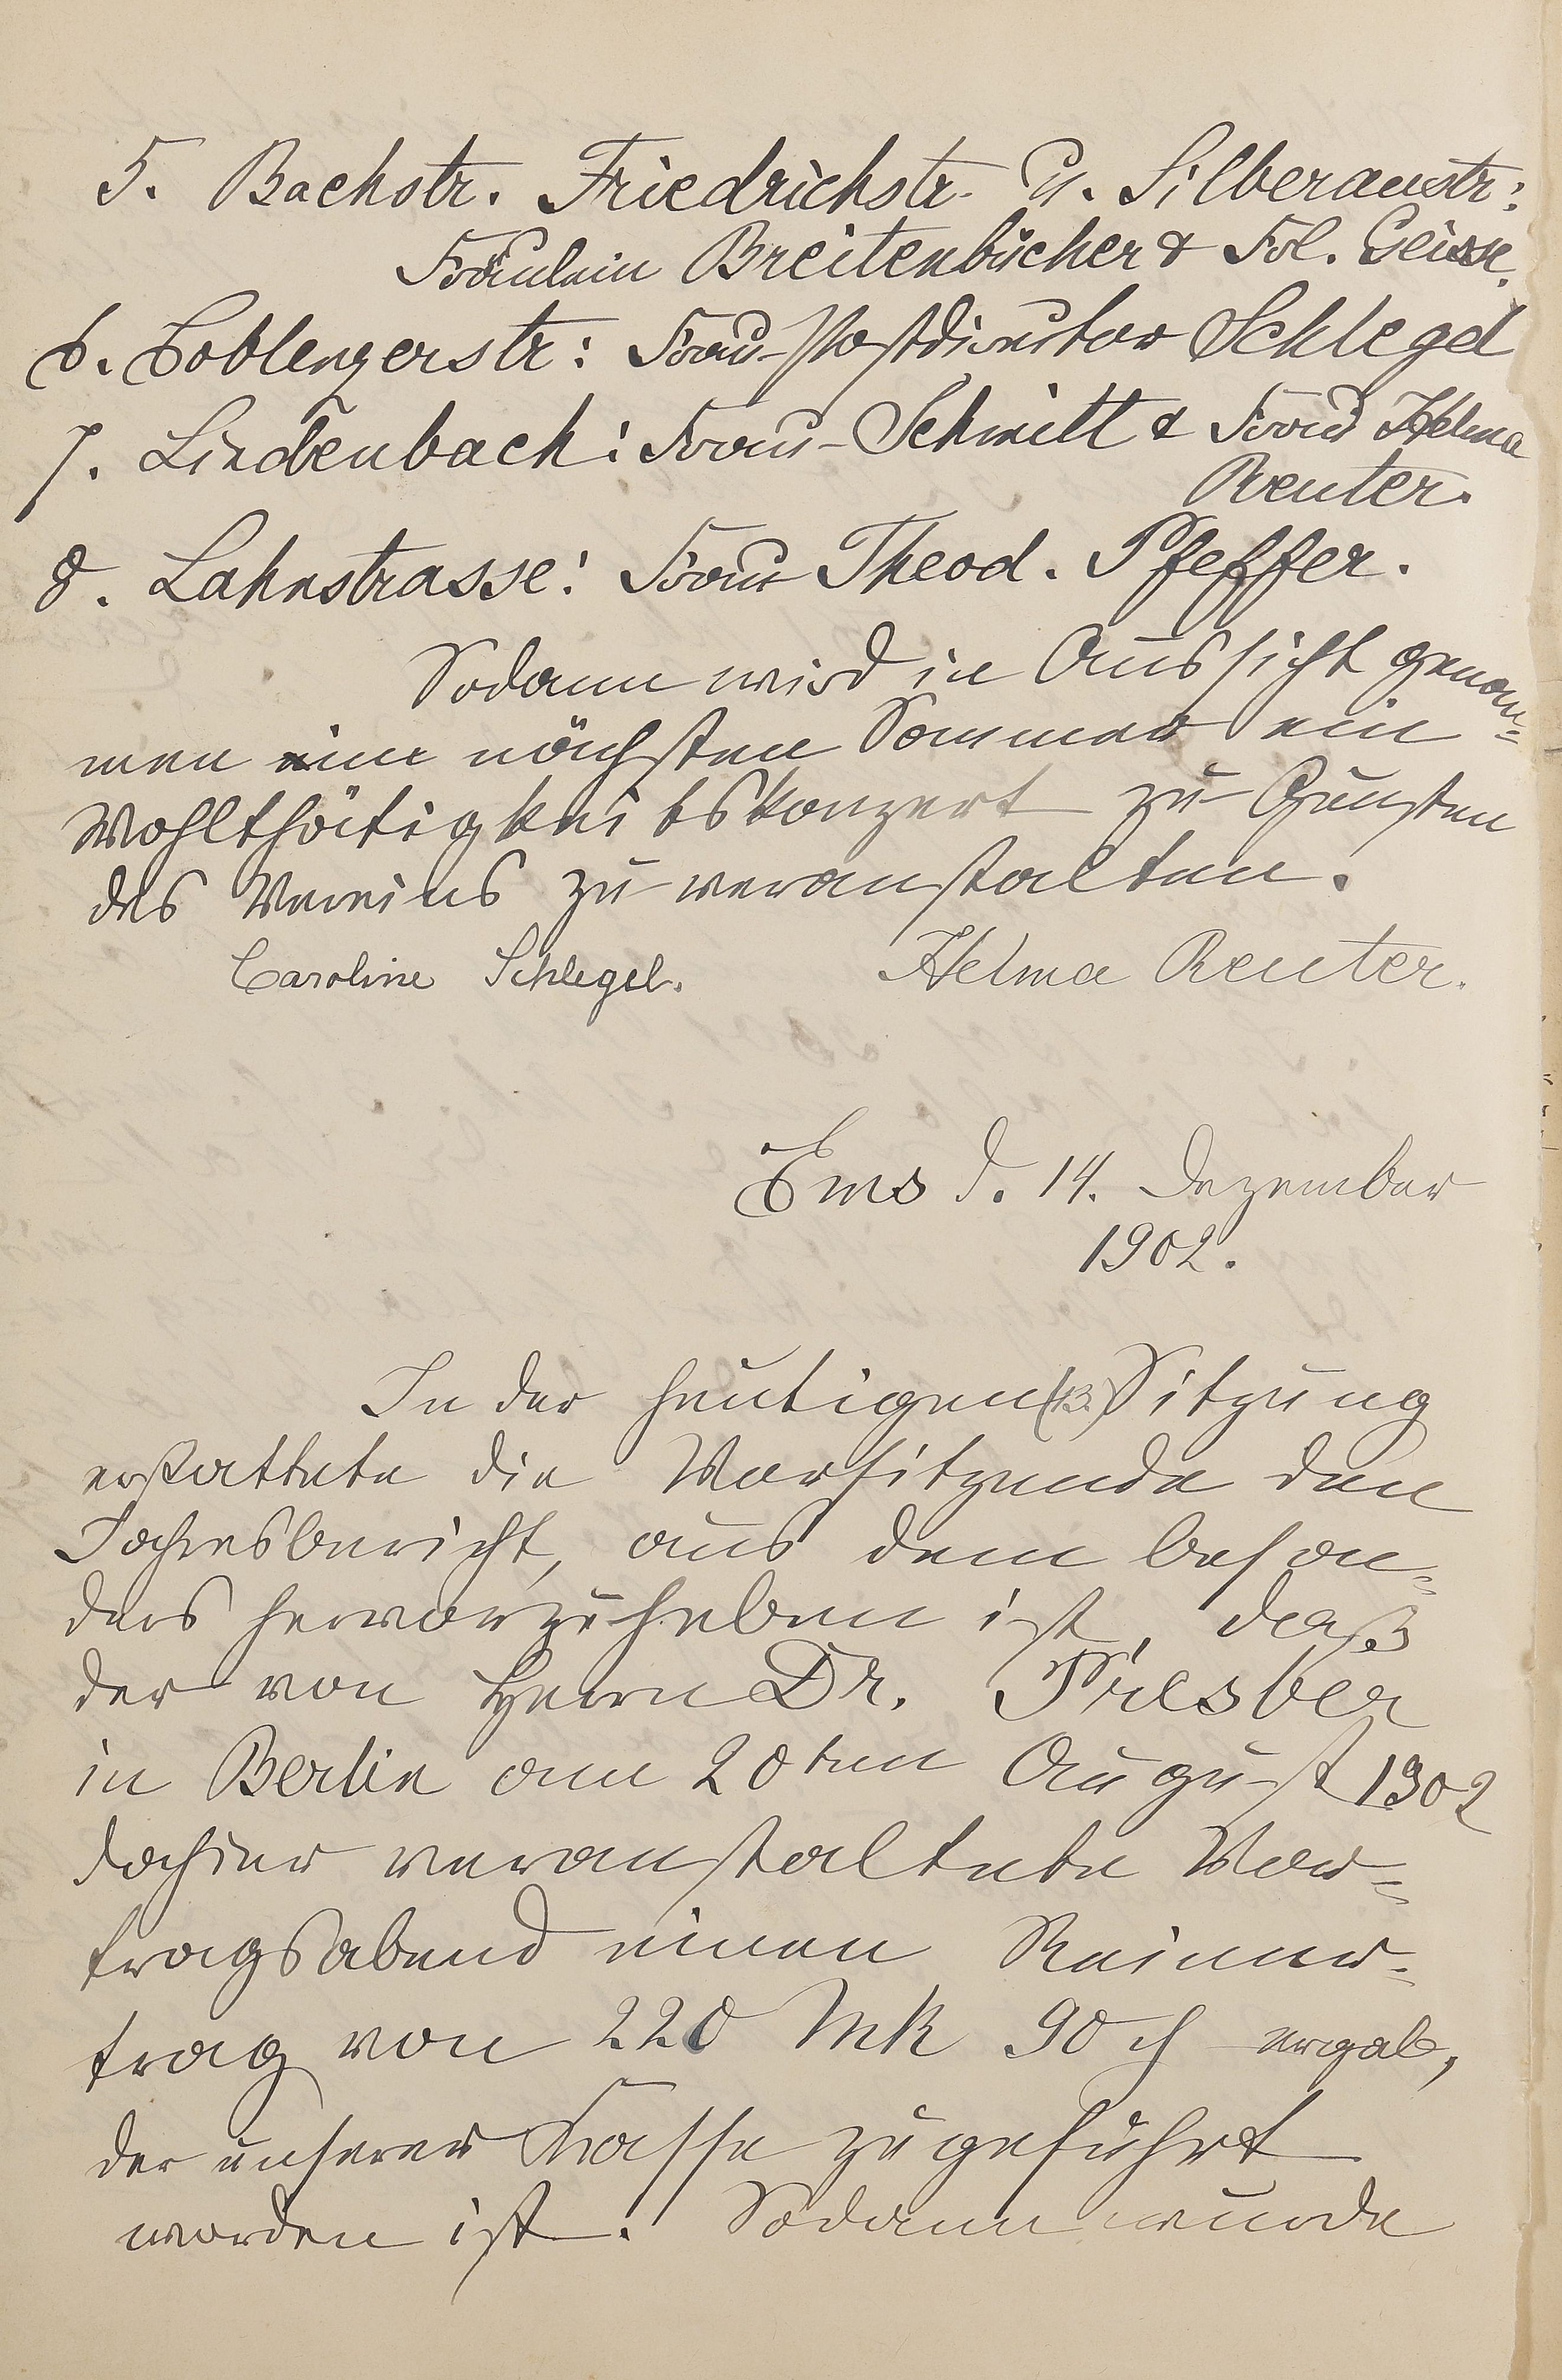 5. Bachstr. Friedrichstr. u. Silberaustr:
Fräulein Breitenbücher & Frl. Geisse.
6. Coblenzerstr: Frau Postdirektor Schlegel
7. Lindenbach: Frau Schmitt & Frau Helma
Reuter.
8. Lahnstrasse: Frau Theod. Pfeffer.
Sodann wird in Aussicht genom=
men im nächsten Sommer ein
Wohlthätigkeitskonzert zu Gunsten
des Vereins zu veranstalten.
Caroline Schlegel. Helma Reuter.
Ems d. 14. Dezember
1902.
In der heutigen (13.) Sitzung
erstattete die Vorsitzende den
Jahresbericht, aus dem beson=
ders hervorzuheben ist, daß
der von Herrn Dr. Presber
in Berlin am 20ten August 1902
dahier veranstaltete Vor=
tragsabend einen Reiner=
trag von 220 Mk 90 ₰ ergab,
der unserer Kasse zugeführt
worden ist. Sodann wurde